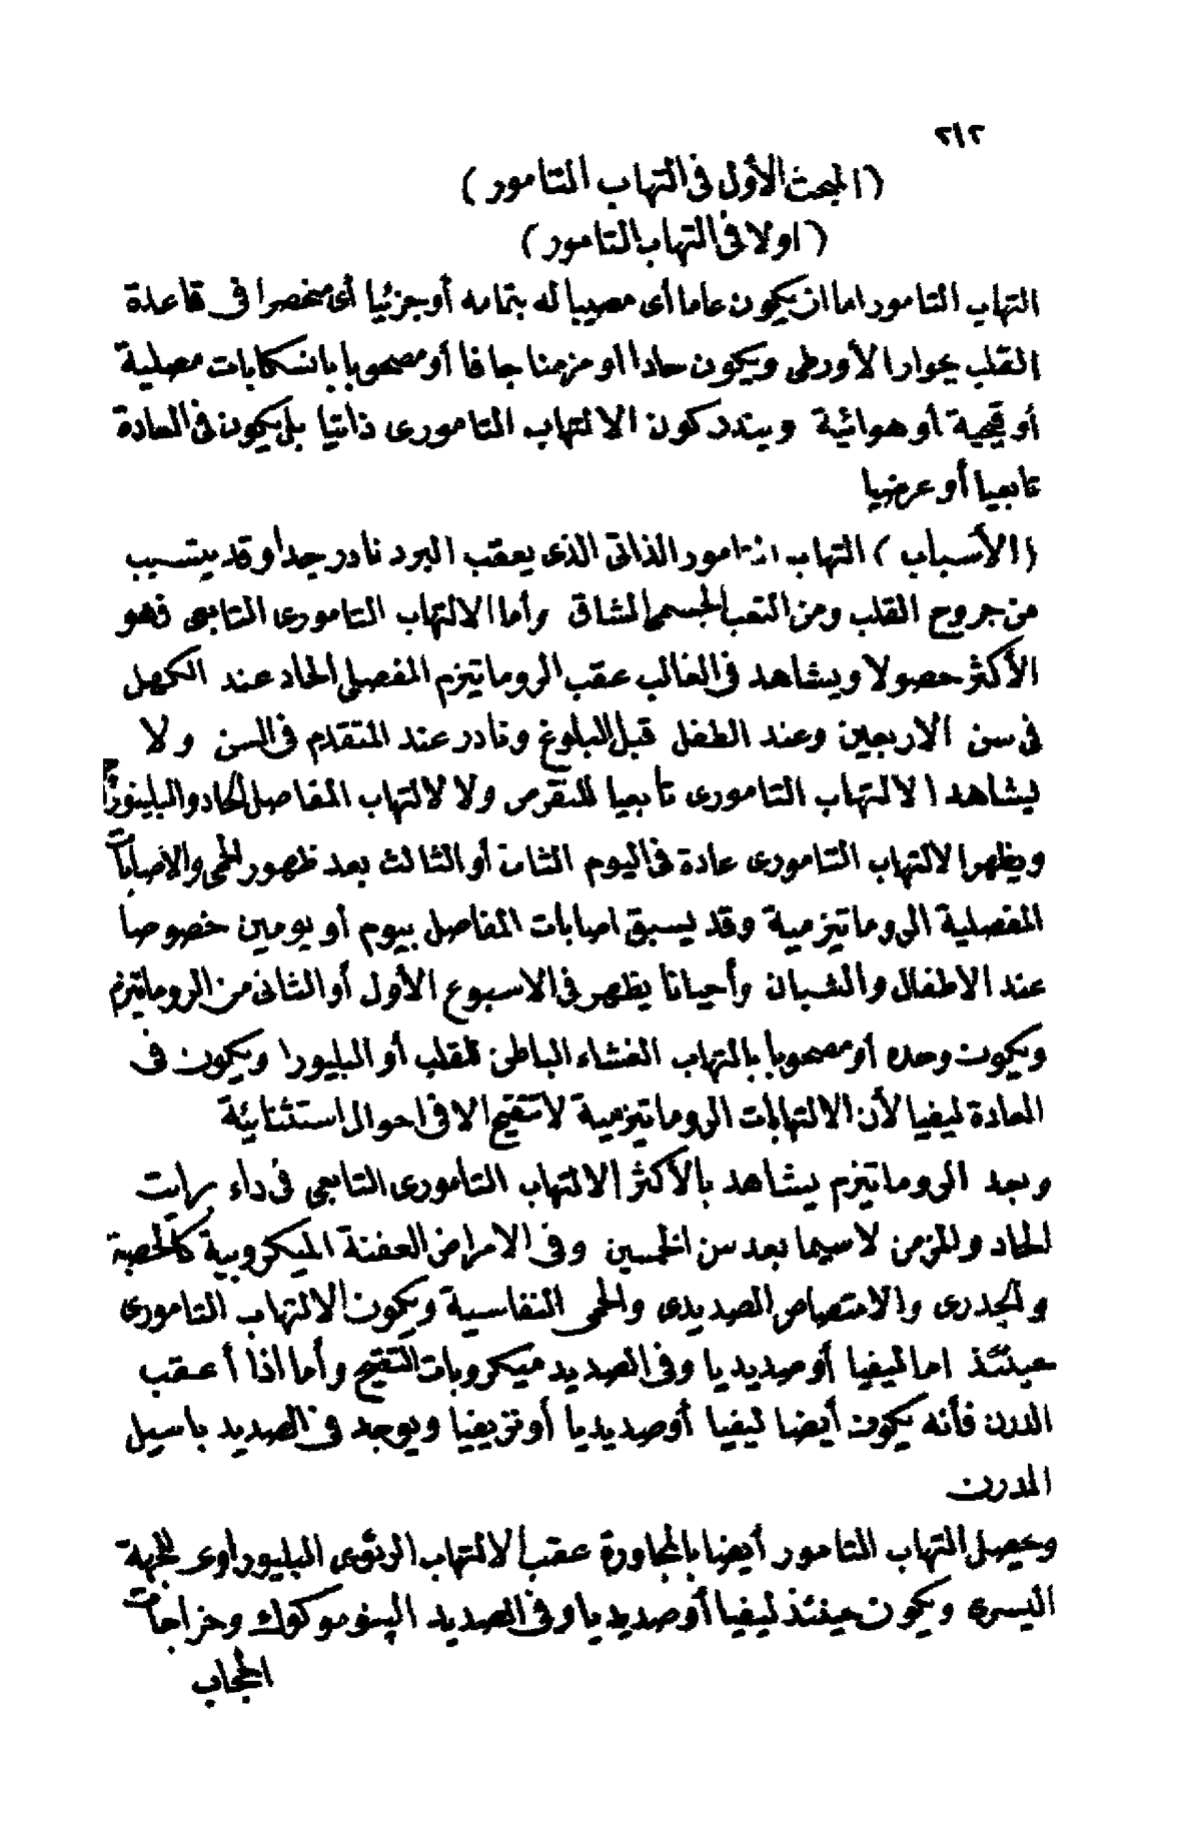 ٢١٢
(المبحث الأول فى التهاب التامور)
(اولا فى التهاب التامور)
التهاب التامور اما ان يكون عاما أى مصيبا له بتمامه أو جزئيا أى منحصرا فى قاعدة
القلب بجوار الأورطى ويكون حادا او مزمنا جافا أو مصحوبا بانسكابات مصلية
أو قيحية أو هوائية ويندر كون الالتهاب التامورى ذاتيا بل يكون فى العادة
تابعيا أو عرضيا
(الأسباب) التهاب التامور الذاتى الذى يعقب البرد نادر جدا وقد يتسبب
من جروح القلب ومن التعب الجسمى الشاق وأما الالتهاب التامورى التابعى فهو
الأكثر حصولا ويشاهد فى الغالب عقب الروماتيزم المفصلى الحاد عند الكهل
فى سن الاربعين وعند الطفل قبل البلوغ ونادر عند المتقدم فى السن ولا
يشاهد الالتهاب التامورى تابعيا للنقرس ولا لالتهاب المفاصل الحاد والبلينوراجى
ويظهر الالتهاب التامورى عادة فى اليوم الثانى أو الثالث بعد ظهور الحمى والاصابات
المفصلية الروماتيزمية وقد يسبق اصابات المفاصل بيوم أو يومين خصوصا
عند الاطفال والشبان وأحيانا يظهر فى الاسبوع الأول أو الثانى من الروماتيزم
ويكون وحده أو مصحوبا بالتهاب الغشاء الباطن للقلب أو البليورا ويكون فى
العادة ليفيا لأن الالتهابات الروماتيزمية لا تتقيح الا فى احوال استثنائية
وبعد الروماتيزم يشاهد بالأكثر الالتهاب التامورى التابعى فى داء برايت
الحاد والمزمن لاسيما بعد سن الخمسين وفى الامراض العفنة الميكروبية كالحصبة
والجدرى والامتصاص الصديدى والحمى النفاسية ويكون الالتهاب التامورى
حينئذ اما ليفيا أو صديديا وفى الصديد ميكروبات التقيح وأما اذا أعقب
الدرن فأنه يكون أيضا ليفيا أو صديديا أو نزيفيا ويوجد فى الصديد باسيل
الدرن
ويحصل التهاب التامور أيضا بالمجاورة عقب الالتهاب الرئوى البليوراوى للجهة
اليسرى ويكون حينئذ ليفيا أو صديديا وفى الصديد البنوموكوك وخراجات
الحجاب